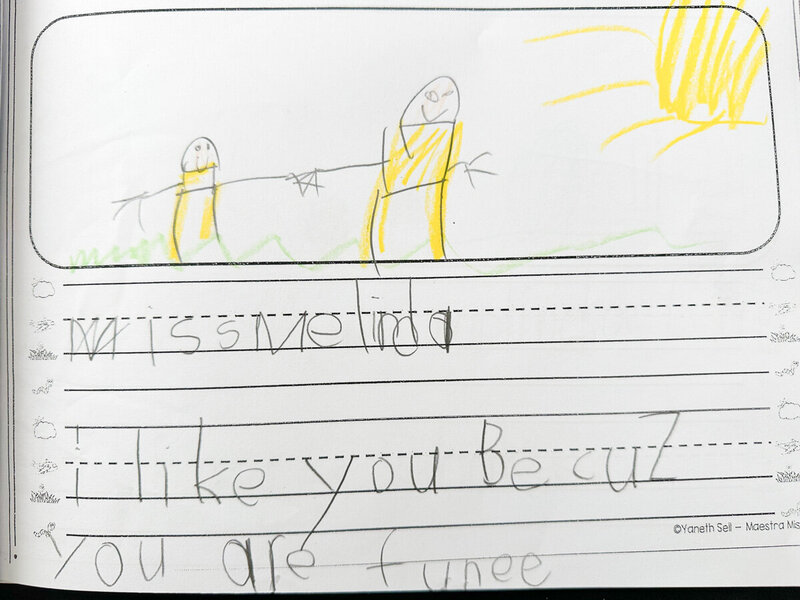 Miss Melinda
i like you Becuz
©Yaneth Sell – Maestra Mis
you are funee